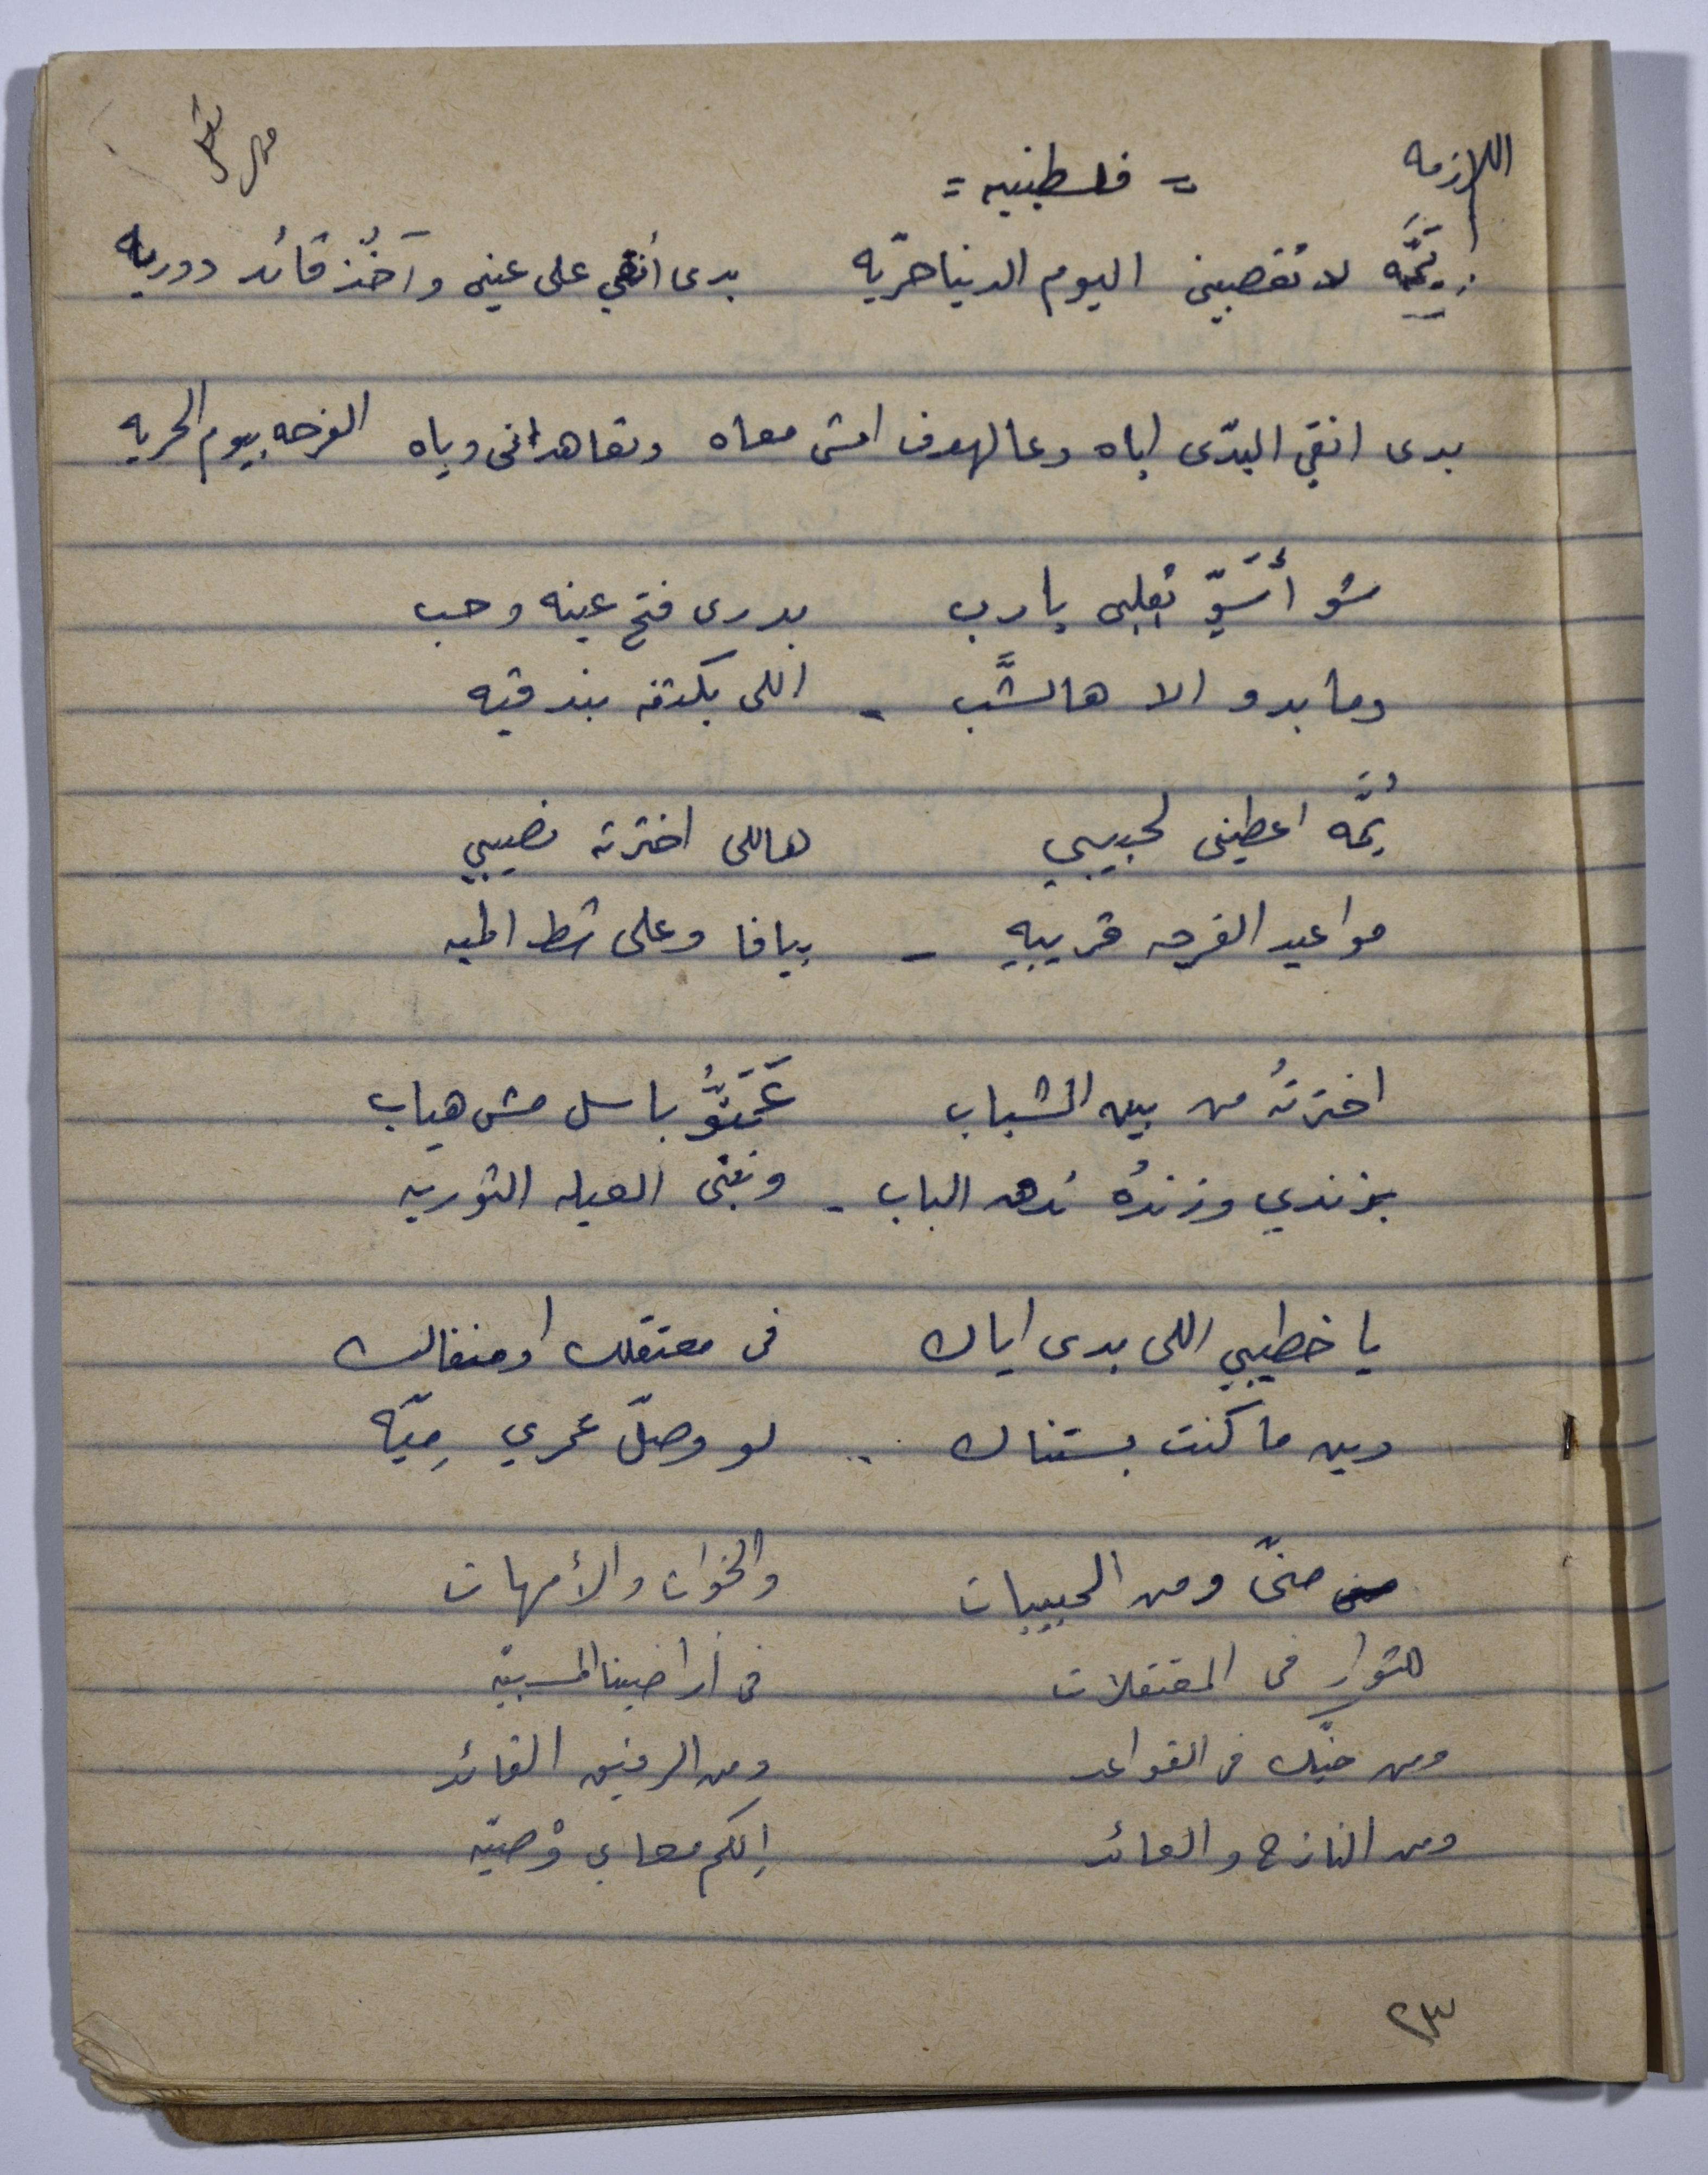 اللازمه
= فلسطينيه =
يُمَّه لا تغصبيني اليوم الدنيا حرّيه بدى أنقي على عيني وآخُذ قائد دوريه
بدى انقي البدّى اياه وعالهدف امشى معاه ونعاهد انى وياه الفرحه بيوم الحريه
شو أسَوّي بقلبي يا رب بدرى فتح عينه وحب
وما بدو الا هالشَّب - اللى بكتفه بندقيه
يُمَّه اعطينى لحبيبي هاللى اخترته نصيبي
مواعيد الفرحه قريبيه - بيافا وعلى شط الميه
اخترتُه من بين الشباب باسل مش هياب
بزندي وزندُه ندهن الباب - ونبنى العيله الثوريه
يا خطيبي اللى بدى اياك فى معتقلك او منفاك
وين ما كنت بستناك .. لو وصل عمري مِيّه
منّى ومن الحبيبات والخوات والأمهات
للثوار فى المعتقلات فى أراضينا المسبيّه
ومن حيّك فى القواعد ومن الرفيق القائد
ومن النازح والعائد إلكم معاي وْصيّه
٢٣